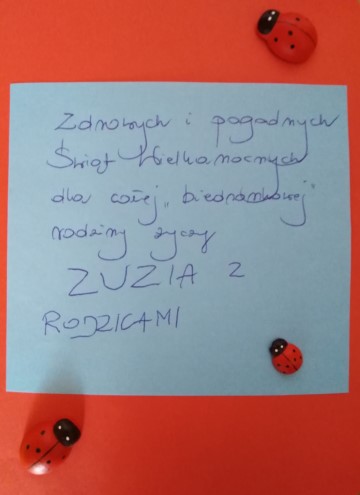 Zdrowych i pogodnych
Świąt Wielkanocnych
dla całej „biedronkowej"
rodziny życzy
ZUZIA Z
RODZICAMI